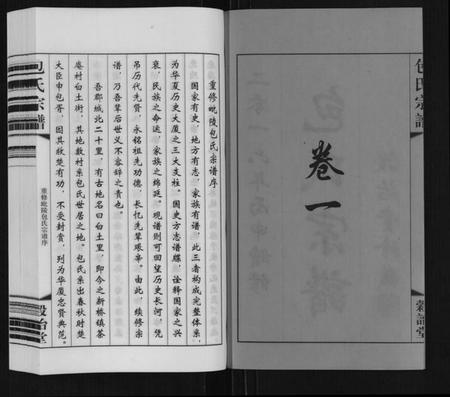 包氏宗譜
卷一
穀詒堂
重修毗陵包氏宗谱序
国家有史,地方有志,家族有谱,此三者构成完整体系,
为华夏历史大厦之三大支柱。国史方志谱牒,诠释国家之兴
衰,民族之命运,家族之绵延。观谱则可回望历史长河,凭
吊历代先贤,永铭祖先功德,长忆先辈艰辛。由此,续修宗
谱,乃吾辈后世义不容辞之责也。
吾郡城北二十里,有古地名曰白土里,即今之新桥镇茶
庵村白土街,其地数村系包氏世居之地。包氏系出春秋时楚
大臣申包胥,因其救楚有功,不受封赏,列为华厦忠贤典范。
包氏宗譜
重修毗陵包氏宗谱序
穀詒堂